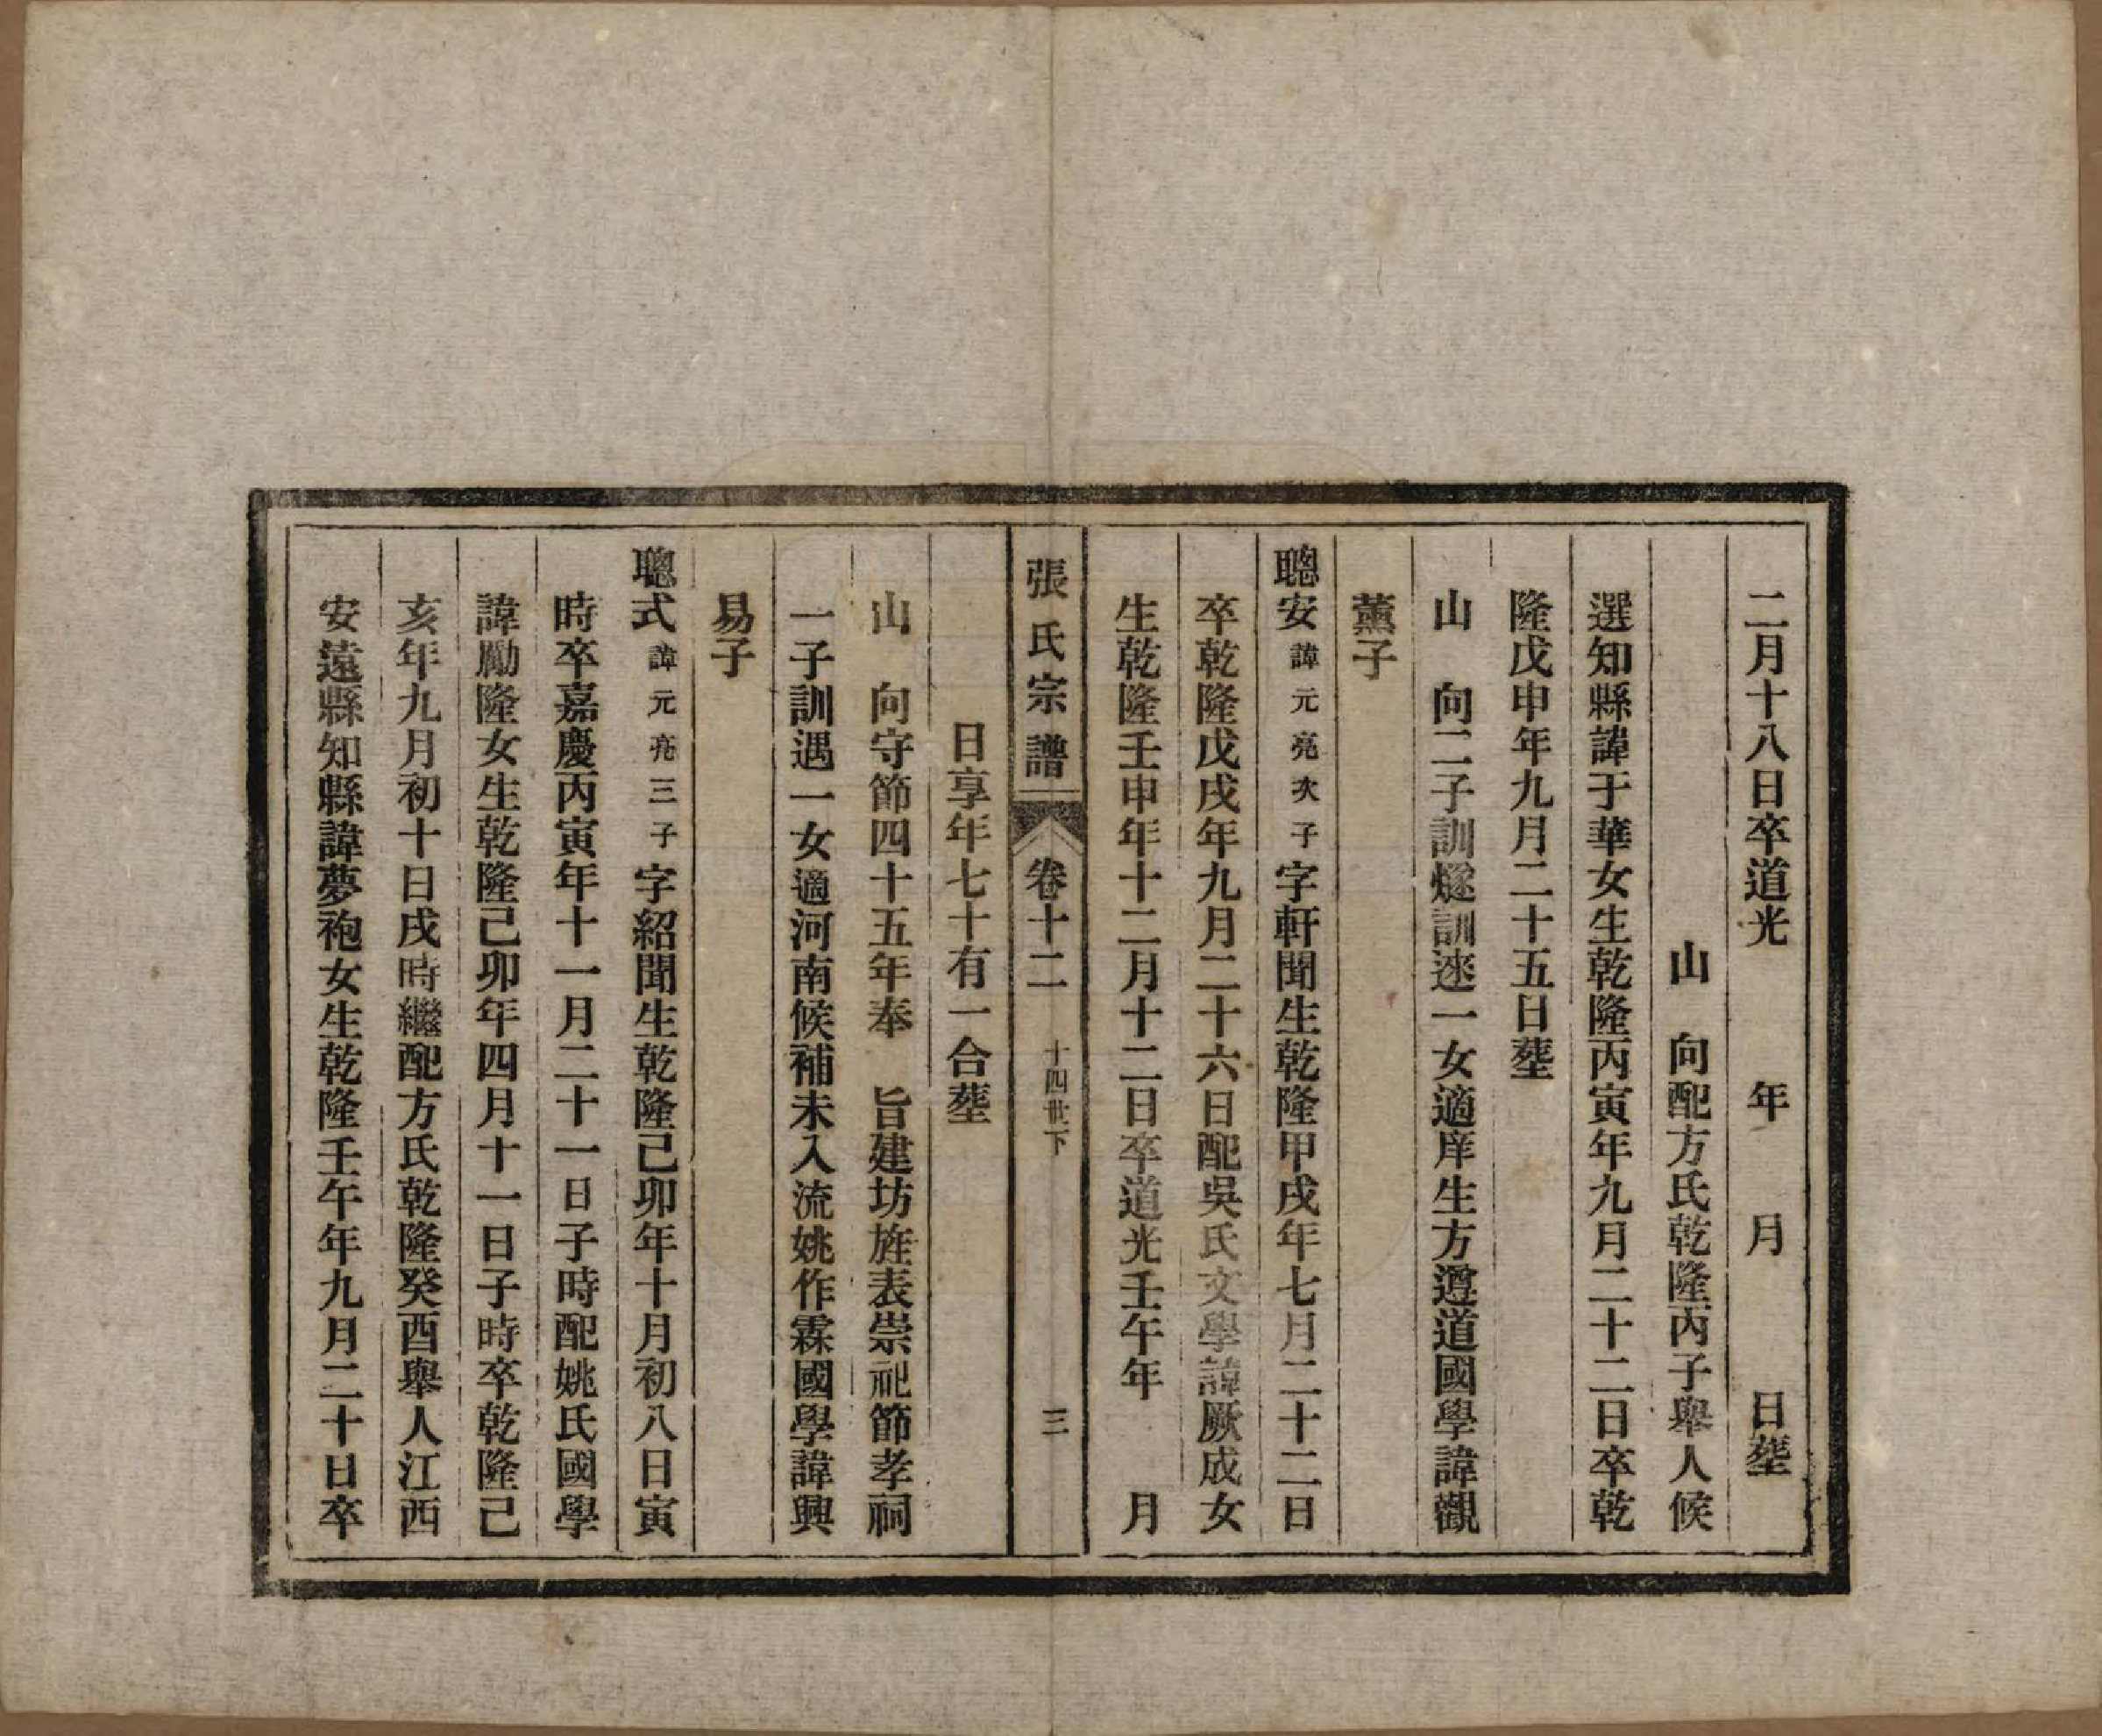 二月十八日卒道光　年　月　日塟
山　向配方氏乾隆丙子舉人候
選知縣諱于華女生乾隆丙寅年九月二十二日卒乾
隆戊申年九月二十五日塟
山　向二子訓㷞訓逨一女適庠生方遵道國學諱觀
薰子
聰安諱元亮次子字軒聞生乾隆甲戌年七月二十二日
卒乾隆戊戌年九月二十六日配吳氏文學諱厥成女
生乾隆壬申年十二月十二日卒道光壬午年　月
張氏宗譜　卷十二　十四世下　三
日享年七十有一合塟
山　向守節四十五年奉　旨建坊旌表崇祀節孝祠
一子訓遇一女適河南候補未入流姚作霖國學諱興
易子
聰式諱元亮三子字紹聞生乾隆己卯年十月初八日寅
時卒嘉慶丙寅年十一月二十一日子時配姚氏國學
諱勵隆女生乾隆己卯年四月十一日子時卒乾隆己
亥年九月初十日戌時繼配方氏乾隆癸酉舉人江西
安遠縣知縣諱夢袍女生乾隆壬午年九月二十日卒